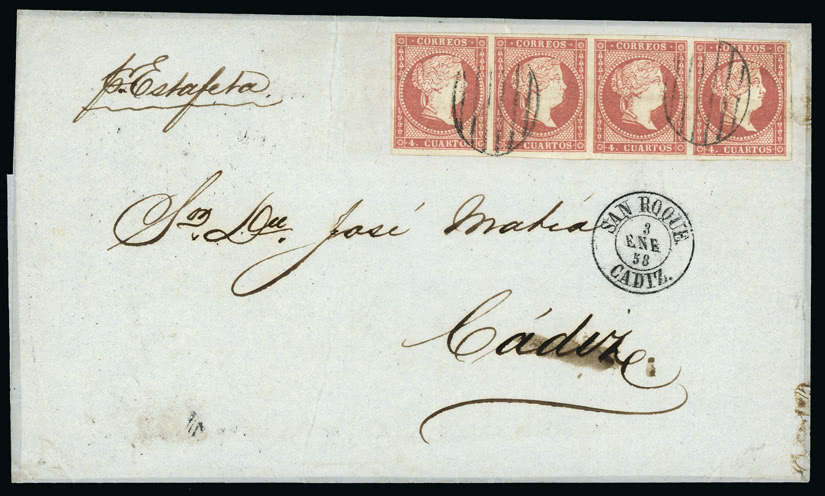 CORREOS CORREOS CORREOS CORREOS
4. CUARTOS 4. CUARTOS 4. CUARTOS 4. CUARTOS
pr. Estafeta.
José Matiá
SAN ROQUE
3
ENE
58
CADIZ.
Cádiz